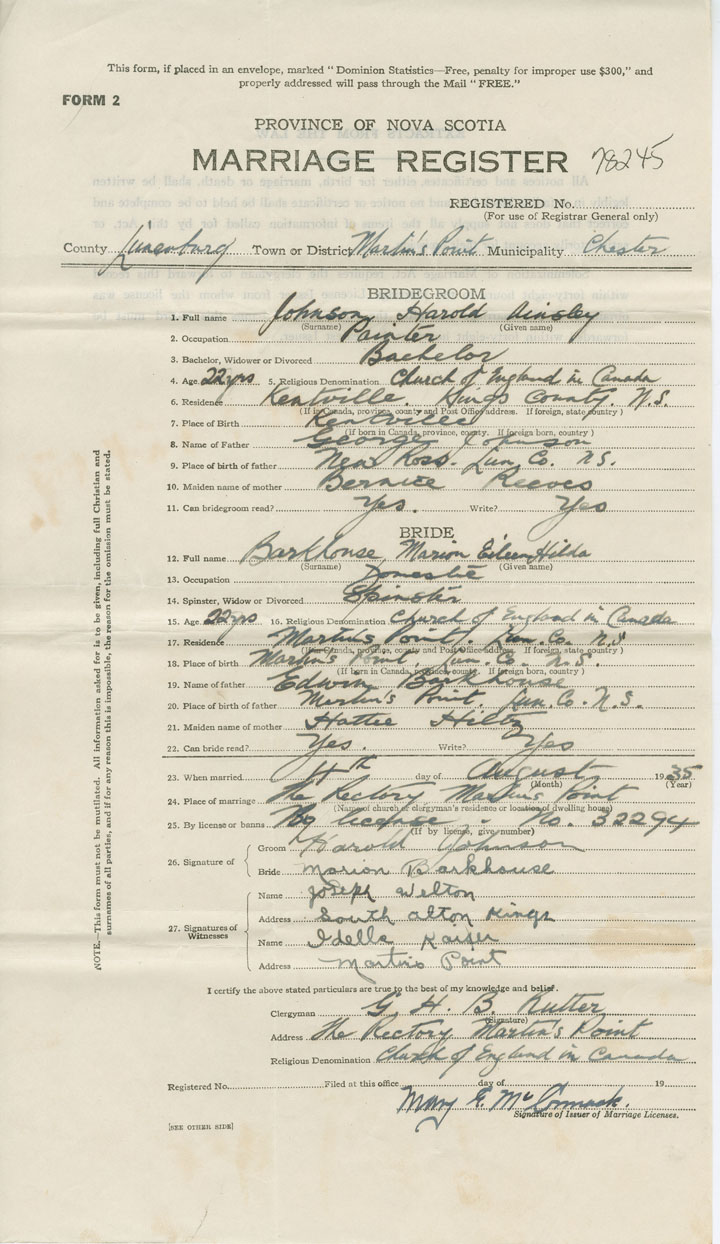 This form, if placed in an envelope, marked "Dominion Statistics—Free, penalty for improper use $300," and
properly addressed will pass through the Mail "FREE."
FORM 2
PROVINCE OF NOVA SCOTIA
MARRIAGE REGISTER 78245
REGISTERED No.
(For use of Registrar General only)
County Lunenburg Town or District Martin's Point Municipality Chester
BRIDEGROOM
1. Full name Johnson Harold Ainsley
(Surname) (Given name)
2. Occupation Painter
3. Bachelor, Widower or Divorced Bachelor
4. Age 22 yrs 5. Religious Denomination Church of England in Canada
6. Residence Kentville. Kings County. N.S.
(If in Canada, province, county and Post Office address. If foreign, state country)
7. Place of Birth Kentville
(If born in Canada, province, county. If foreign born, country)
8. Name of Father George Johnson
9. Place of birth of father New Ross. Lun. Co. N.S.
10. Maiden name of mother Bernice Reeves
11. Can bridegroom read? Yes. Write? Yes
BRIDE
12. Full name Barkhouse Marion Eileen Hilda
(Surname) (Given name)
13. Occupation Domestic
14. Spinster, Widow or Divorced Spinster
15. Age 22 yrs 16. Religious Denomination Church of England in Canada
17. Residence Martin's Point. Lun. Co. N.S
(If in Canada, province, county and Post Office address. If foreign, state country)
18. Place of birth Martin's Point, Lun. Co. N.S.
(If born in Canada, province, county. If foreign born, country)
19. Name of father Edwin Barkhouse
20. Place of birth of father Martin's Point. Lun. Co. N.S.
21. Maiden name of mother Hattie Hiltz
22. Can bride read? Yes. Write? Yes
23. When married 4th day of August 1935
(Month) (Year)
24. Place of marriage The Rectory Martin's Point
(Name of church or clergyman's residence or location of dwelling house)
25. By license or banns By license - No. 32294
(If by license, give number)
26. Signature of
Groom Harold Johnson
Bride Marion Barkhouse
27. Signatures of Witnesses
Name Joseph Welton
Address South alton Kings
Name Idella Kaiser
Address Martins Point
I certify the above stated particulars are true to the best of my knowledge and belief.
Clergyman G. H. B. Rutter
(Signature)
Address The Rectory Martin's Point
Religious Denomination Church of England in Canada
Registered No. Filed at this office day of 19
Mary E. McCormack.
Signature of Issuer of Marriage Licenses.
[SEE OTHER SIDE]
NOTE.—This form must not be mutilated. All information asked for is to be given, including full Christian and
surnames of all parties, and if for any reason this is impossible, the reason for the omission must be stated.